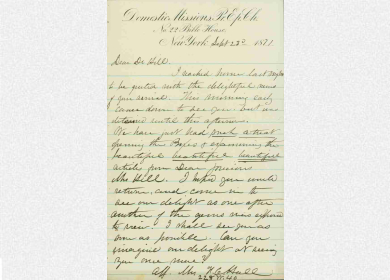 Domestic Missions, P. E. Ch.
No 22 Bible House,
New York Sept 23d 1871
Dear Dr Hill.
I reached home last night
to be greeted with the delightful news
of your arrival. This morning early
I came down to see you but was
detained until this afternoon.
We have just had such a treat
opening the Boxes & examining the
beautiful beautiful beautiful
article from Dear precious
Mrs Hill. I hope you will
return, and come in to
see our delight as one after
another of the gems was exposed
to view. I shall see you as
soon as possible. Can you
imagine our delight at seeing
you once more?
Aff. Mrs